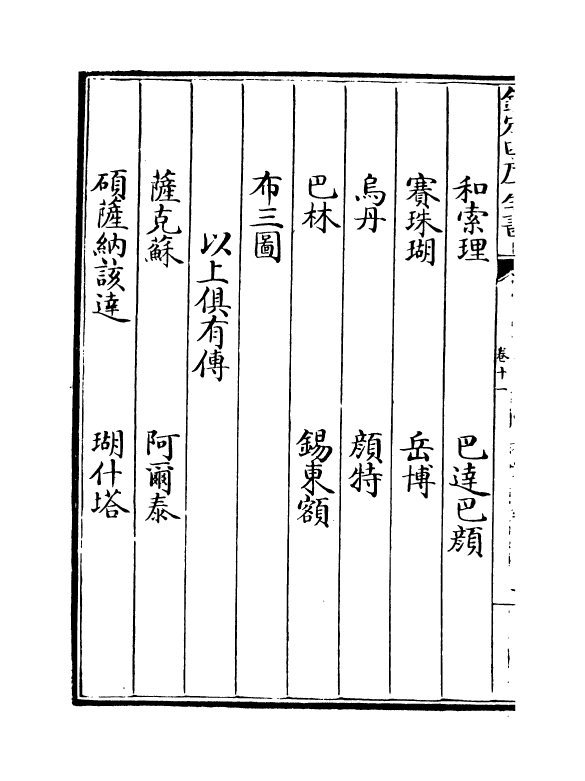 欽定四庫全書
卷十一
和索理 巴達巴顔
賽珠瑚 岳博
烏丹 顔特
巴林 錫東額
布三圖
以上俱有傳
薩克蘇 阿爾泰
碩薩納該達 瑚什塔